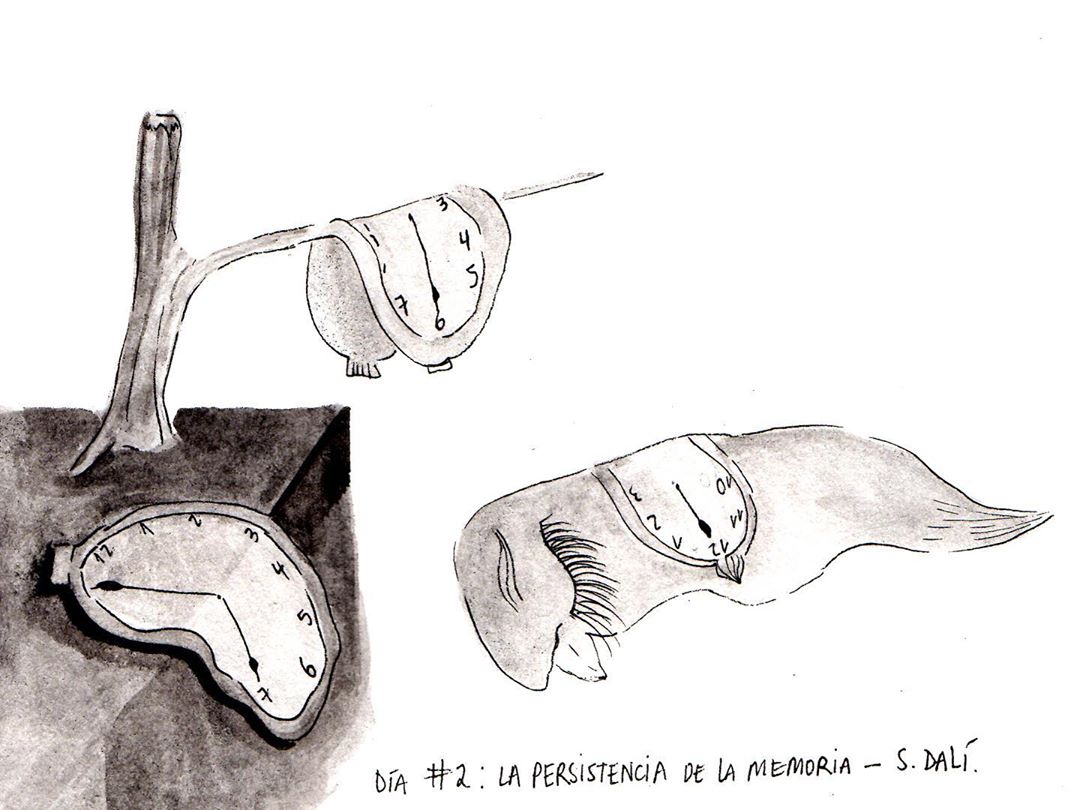 3
4
5
6
7
12
1
2
3
4
5
6
7
3
2
1
12
11
10
DÍA #2: LA PERSISTENCIA DE LA MEMORIA – S. DALÍ.